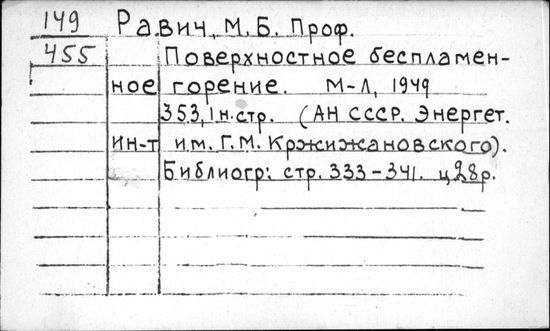 149 Равич, М.Б. Проф.
455 Поверхностное беспламен-
ное горение. М-Л, 1949
353, 1 н. стр. (АН СССР. Энергет.
ин-т им. Г.М. Кржижановского).
Библиогр: стр. 333-341. ц28р.